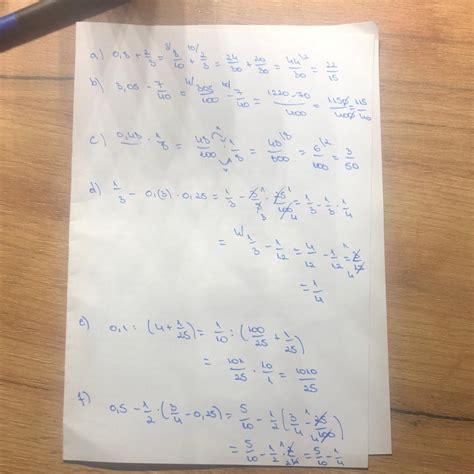 a) 0,8 + 2/3 = 3/ 8/10 + 10/ 2/3 = 24/30 + 20/30 = 44/30 /2 = 22/15
b) 3,05 - 7/40 = 4/ 305/100 - 10/ 7/40 = 1220-70/400 = 1150/400 = 115/40
c) 0,48 · 1/8 = 48/100 · 1/8 = 48/800 /8 = 6/100 /2 = 3/50
d) 1/3 - 0,(3) · 0,25 = 1/3 - 3/9 · 25/100 = 1/3 - 1/3 · 1/4
= 4/ 1/3 - 1/12 = 4/12 - 1/12 = 3/12
= 1/4
e) 0,1 : (4 + 1/25) = 1/10 : (100/25 + 1/25)
= 101/25 · 10/1 = 1010/25
f) 0,5 - 1/2 · (3/4 - 0,25) = 5/10 - 1/2 (3/4 - 25/100)
= 5/10 - 1/2 · 2/4 = 5/10 - 1/4